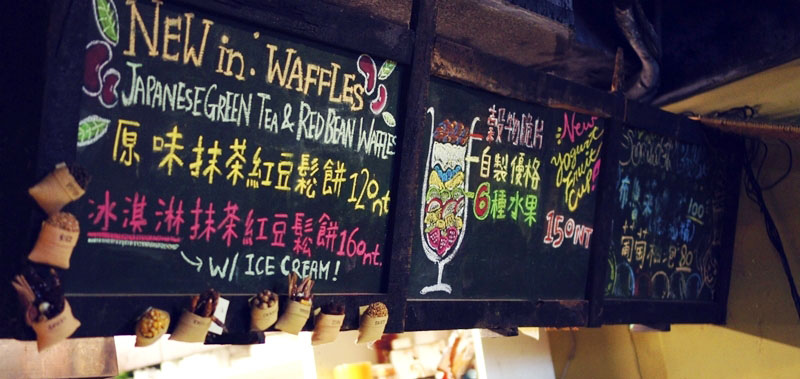 NEW in! WAFFLES
JAPANESE GREEN TEA & RED BEAN WAFFLES
原味抹茶紅豆鬆餅120nt
冰淇淋抹茶紅豆鬆餅160nt.
W/ ICE CREAM!
穀物脆片
自製優格
6種水果
New
yogurt
fruit
cup
150NT